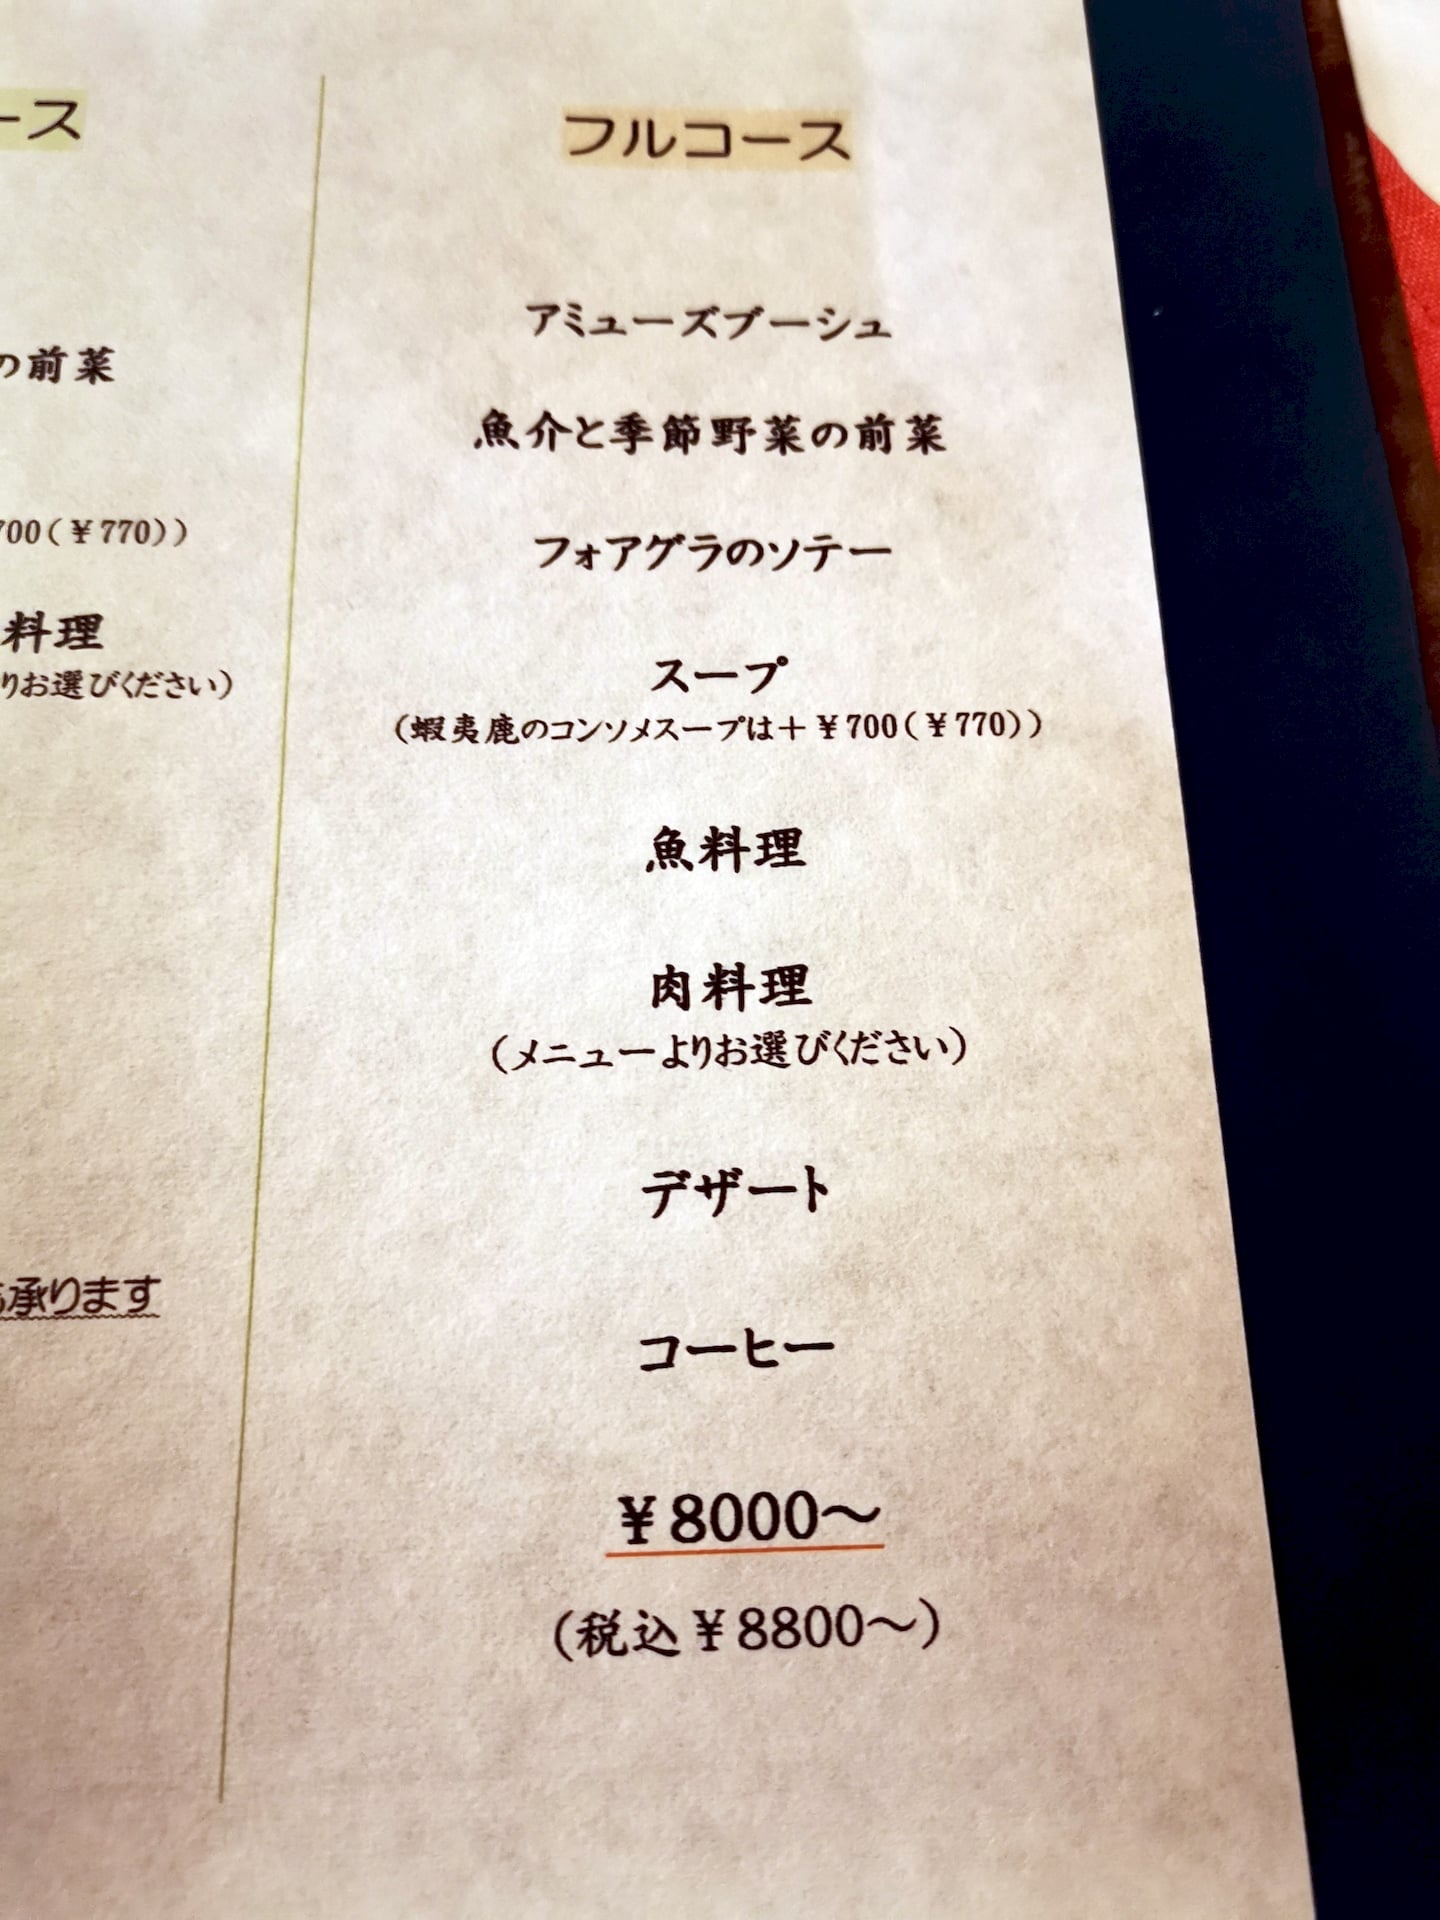 ース
の前菜
700(￥770))
料理
りお選びください)
承ります
フルコース
アミューズブーシュ
魚介と季節野菜の前菜
フォアグラのソテー
スープ
(蝦夷鹿のコンソメスープは＋￥700(￥770))
魚料理
肉料理
(メニューよりお選びください)
デザート
コーヒー
￥8000～
(税込￥8800～)